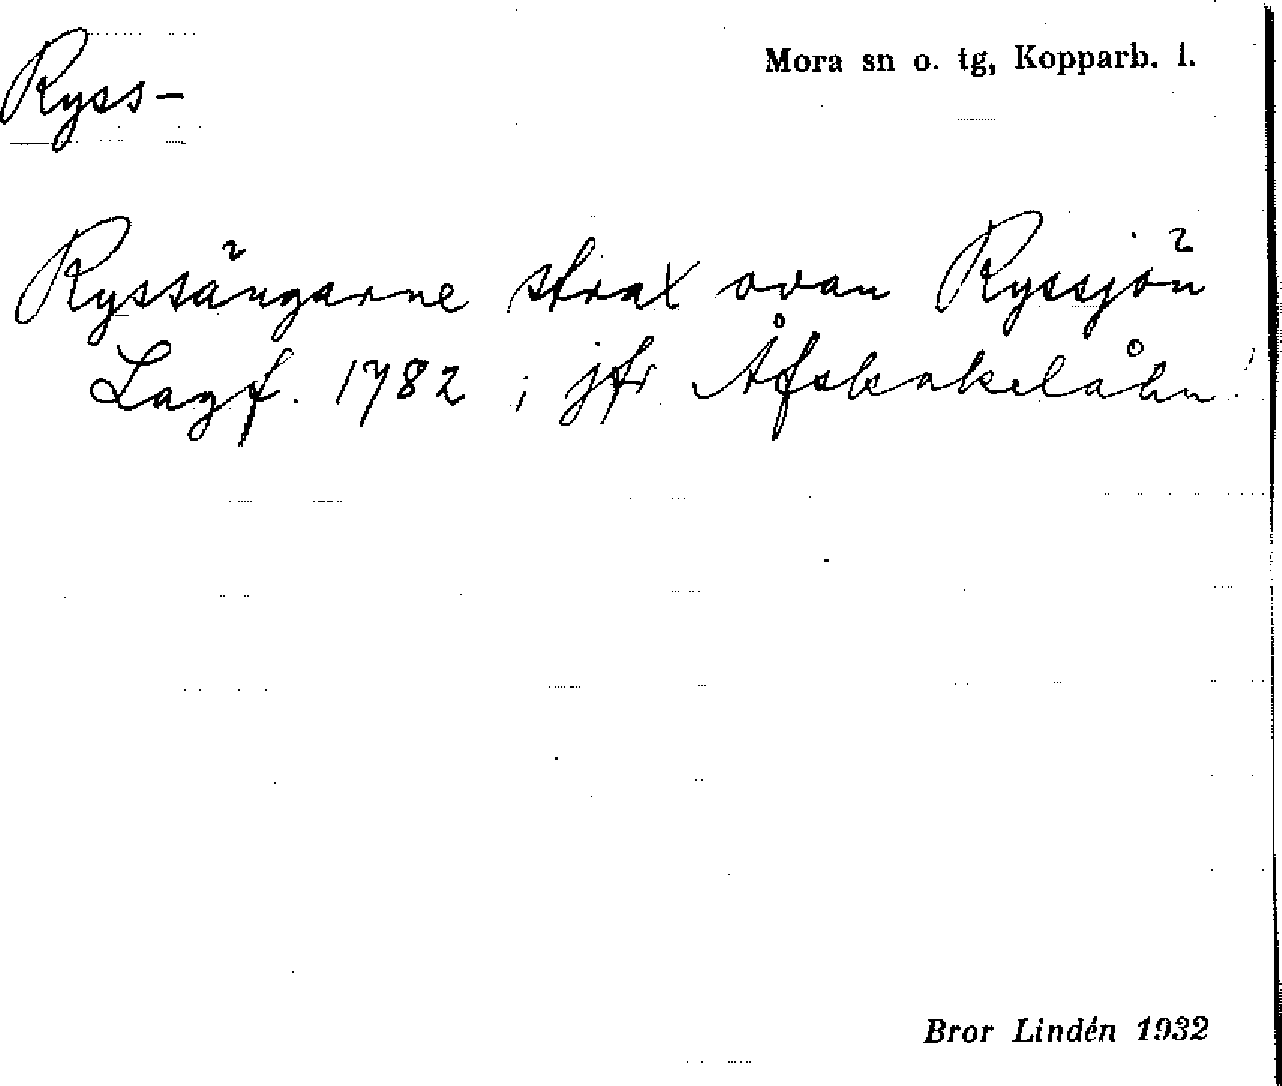 Ryss-
Mora sn o. tg, Kopparb. l.
Ryssängarne strax ovan Ryssjön
Lagf. 1782 ; jfr Åfskakelåhn!
Bror Lindén 1932